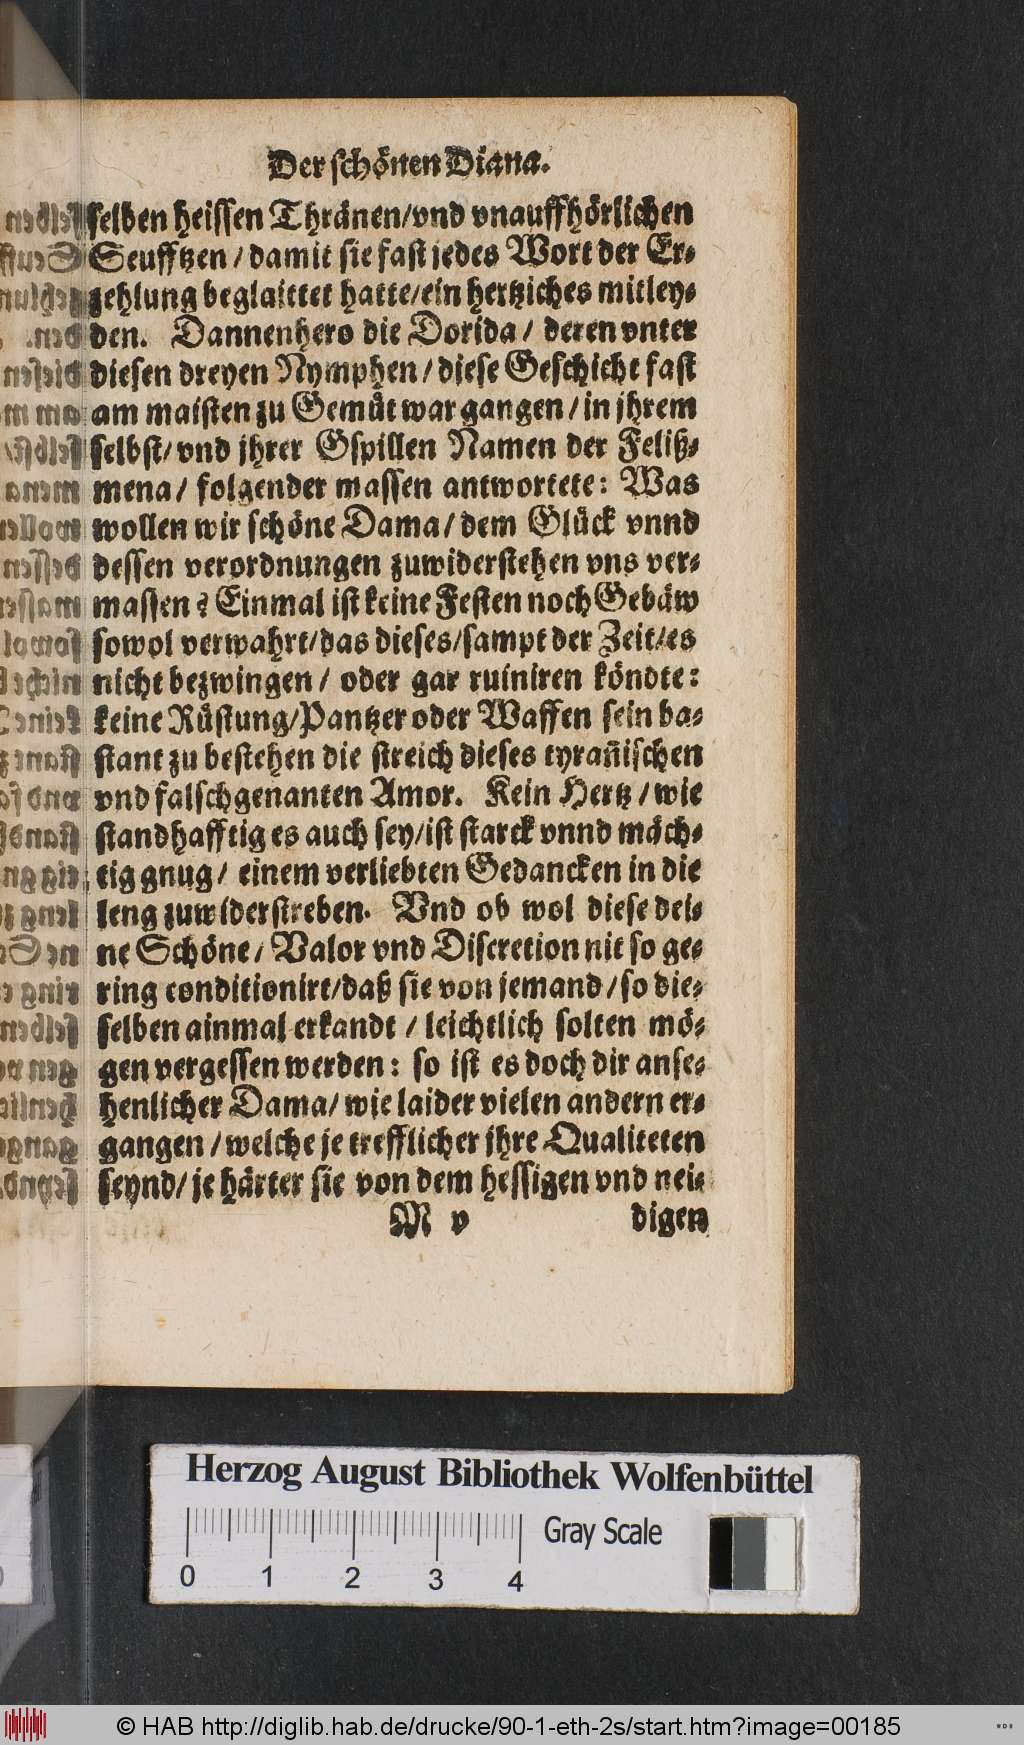 Der schönen Diana.
selben heissen Thränen/vnd vnauffhörlichen
Seufftzen/damit sie fast jedes Wort der Er-
zehlung beglaittet hatte/ein hertziches mitley-
den. Dannenhero die Dorida/ deren vnter
diesen dreyen Nymphen/diese Geschicht fast
am maisten zu Gemüt war gangen/in jhrem
selbst/vnd jhrer Gspillen Namen der Feliß-
mena/ folgender massen antwortete: Was
wollen wir schöne Dama/dem Glück vnnd
dessen verordnungen zuwiderstehen vns ver-
massen? Einmal ist keine Festen noch Gebäw
sowol verwahrt/das dieses/sampt der Zeit/es
nicht bezwingen/ oder gar ruiniren köndte:
keine Rüstung/Pantzer oder Waffen sein ba-
stant zu bestehen die streich dieses tyrañischen
vnd falschgenanten Amor. Kein Hertz/wie
standhafftig es auch sey/ist starck vnnd mäch-
tig gnug/ einem verliebten Gedancken in die
leng zuwiderstreben. Vnd ob wol diese dei-
ne Schöne/Valor vnd Discretion nit so ge-
ring conditionirt/daß sie von jemand/so die-
selben ainmal erkandt/leichtlich solten mö-
gen vergessen werden: so ist es doch dir anse-
henlicher Dama/wie laider vielen andern er-
gangen/welche je trefflicher jhre Qualiteten
seynd/je härter sie von dem hessigen vnd nei-
M v digen
Herzog August Bibliothek Wolfenbüttel
Gray Scale
0 1 2 3 4
© HAB http://diglib.hab.de/drucke/90-1-eth-2s/start.htm?image=00185